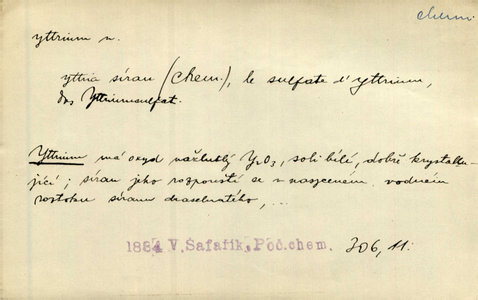 chemi.
yttrium n.
yttria síran (chem.), le sulfate d'yttrium,
das Yttriumsulfat.
Yttrium má oxyd nažlutlý Y₂O₃, soli bílé, dobře krystallu-
jící; síran jeho rozpouští se v nasyceném vodném
roztoku síranu draselnatého, ...
1884 V. Šafařík, Poč. chem. 306, 11.